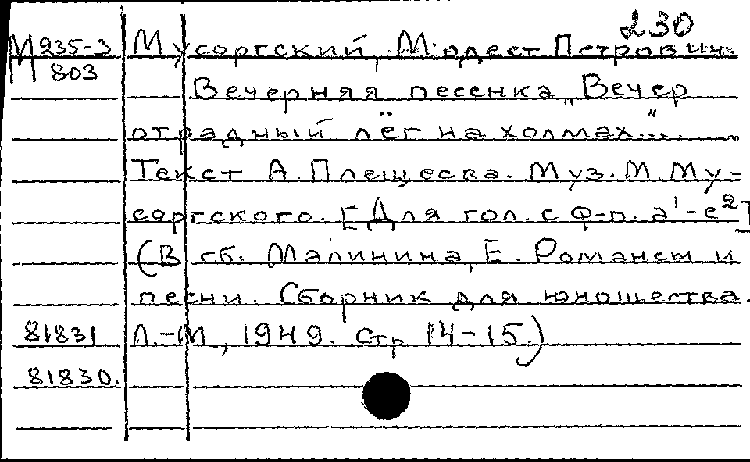 230
М 235-3 Мусоргский, Модест Петрович.
803
Вечерняя песенка „Вечер
отрадный лёг на холмах...“
Текст А. Плещеева. Муз. М. Му-
соргского. [Для гол. с ф-п. а¹-е²]
(В сб. Малинина, Е. Романсы и
песни. Сборник для юношества.
81831 Л.-М., 1949. Стр. 14-15.)
81830.